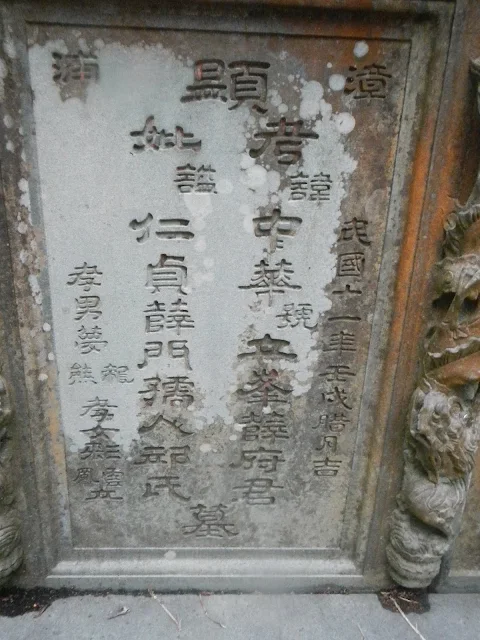 漳
民國十一年壬戌臘月吉
顯
考諱中華號立峯薛府君
妣諡仁貞薛門孺人邱氏
墓
浦
孝男夢龍熊
孝女